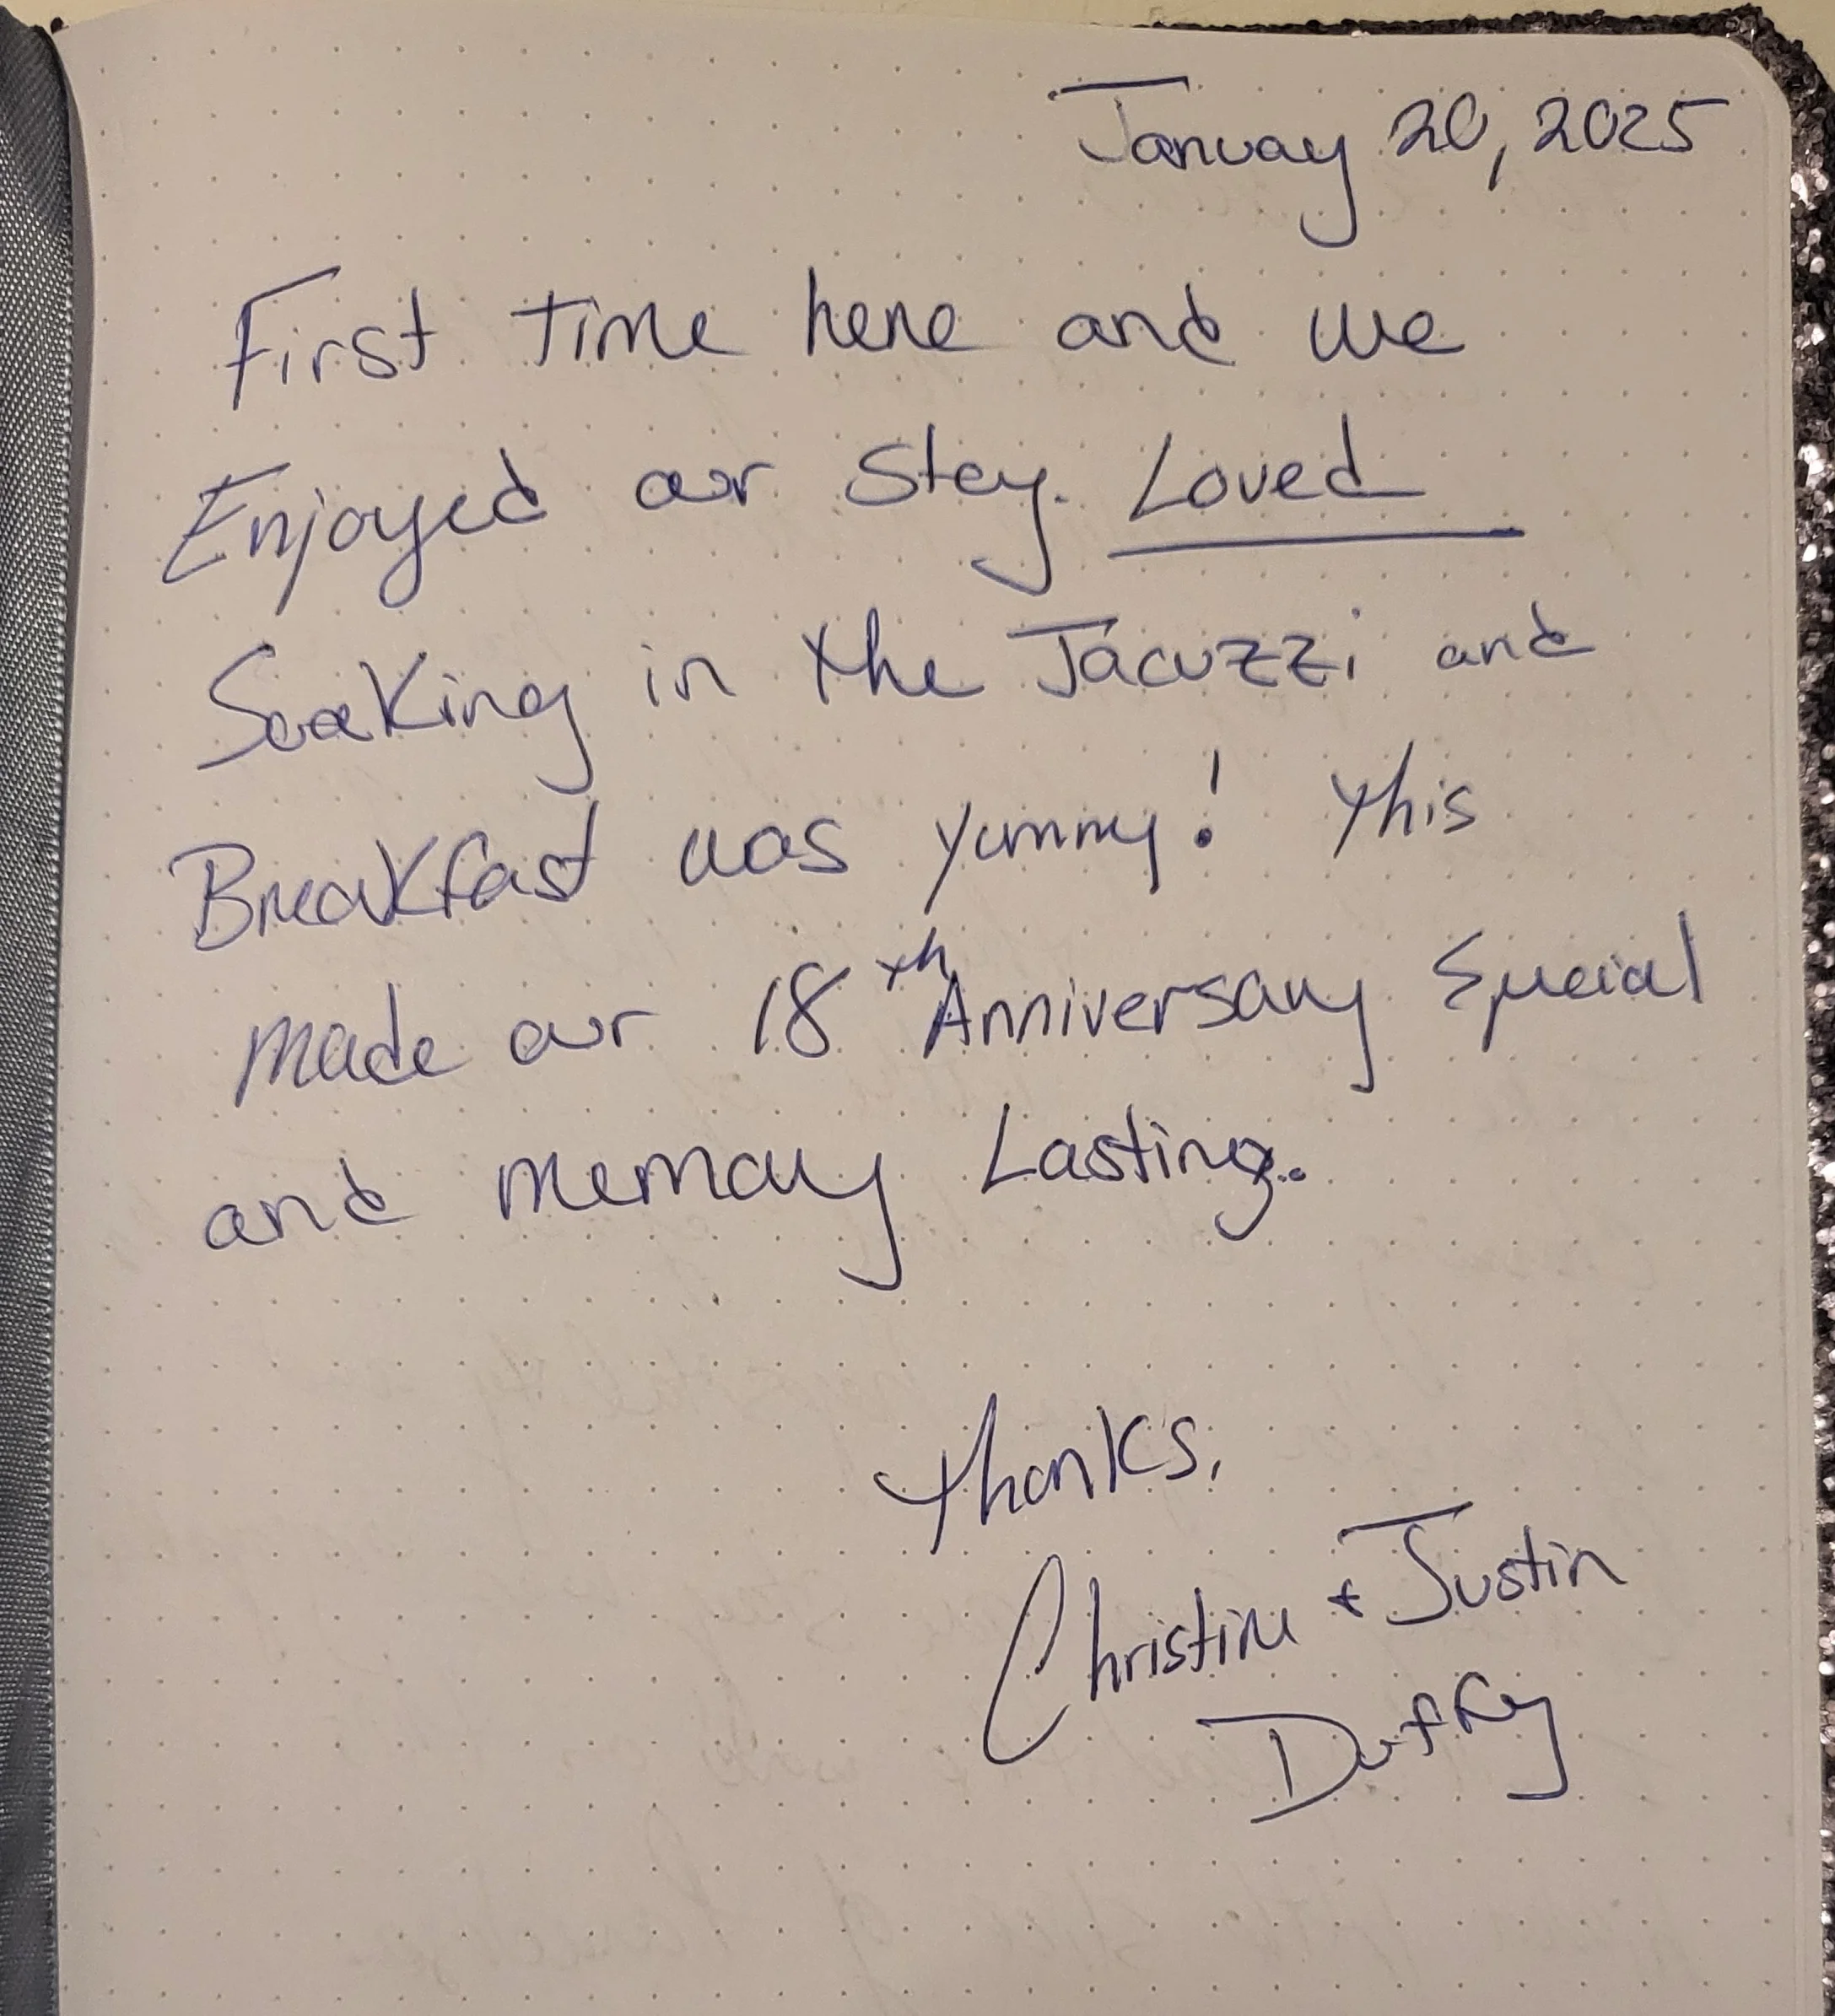 January 20, 2025
First time here and we
Enjoyed our Stay. Loved
Soaking in the Jacuzzi and
Breakfast was yummy! This
made our 18th Anniversary Special
and memory Lasting.
Thanks,
Christine + Justin
Duffey